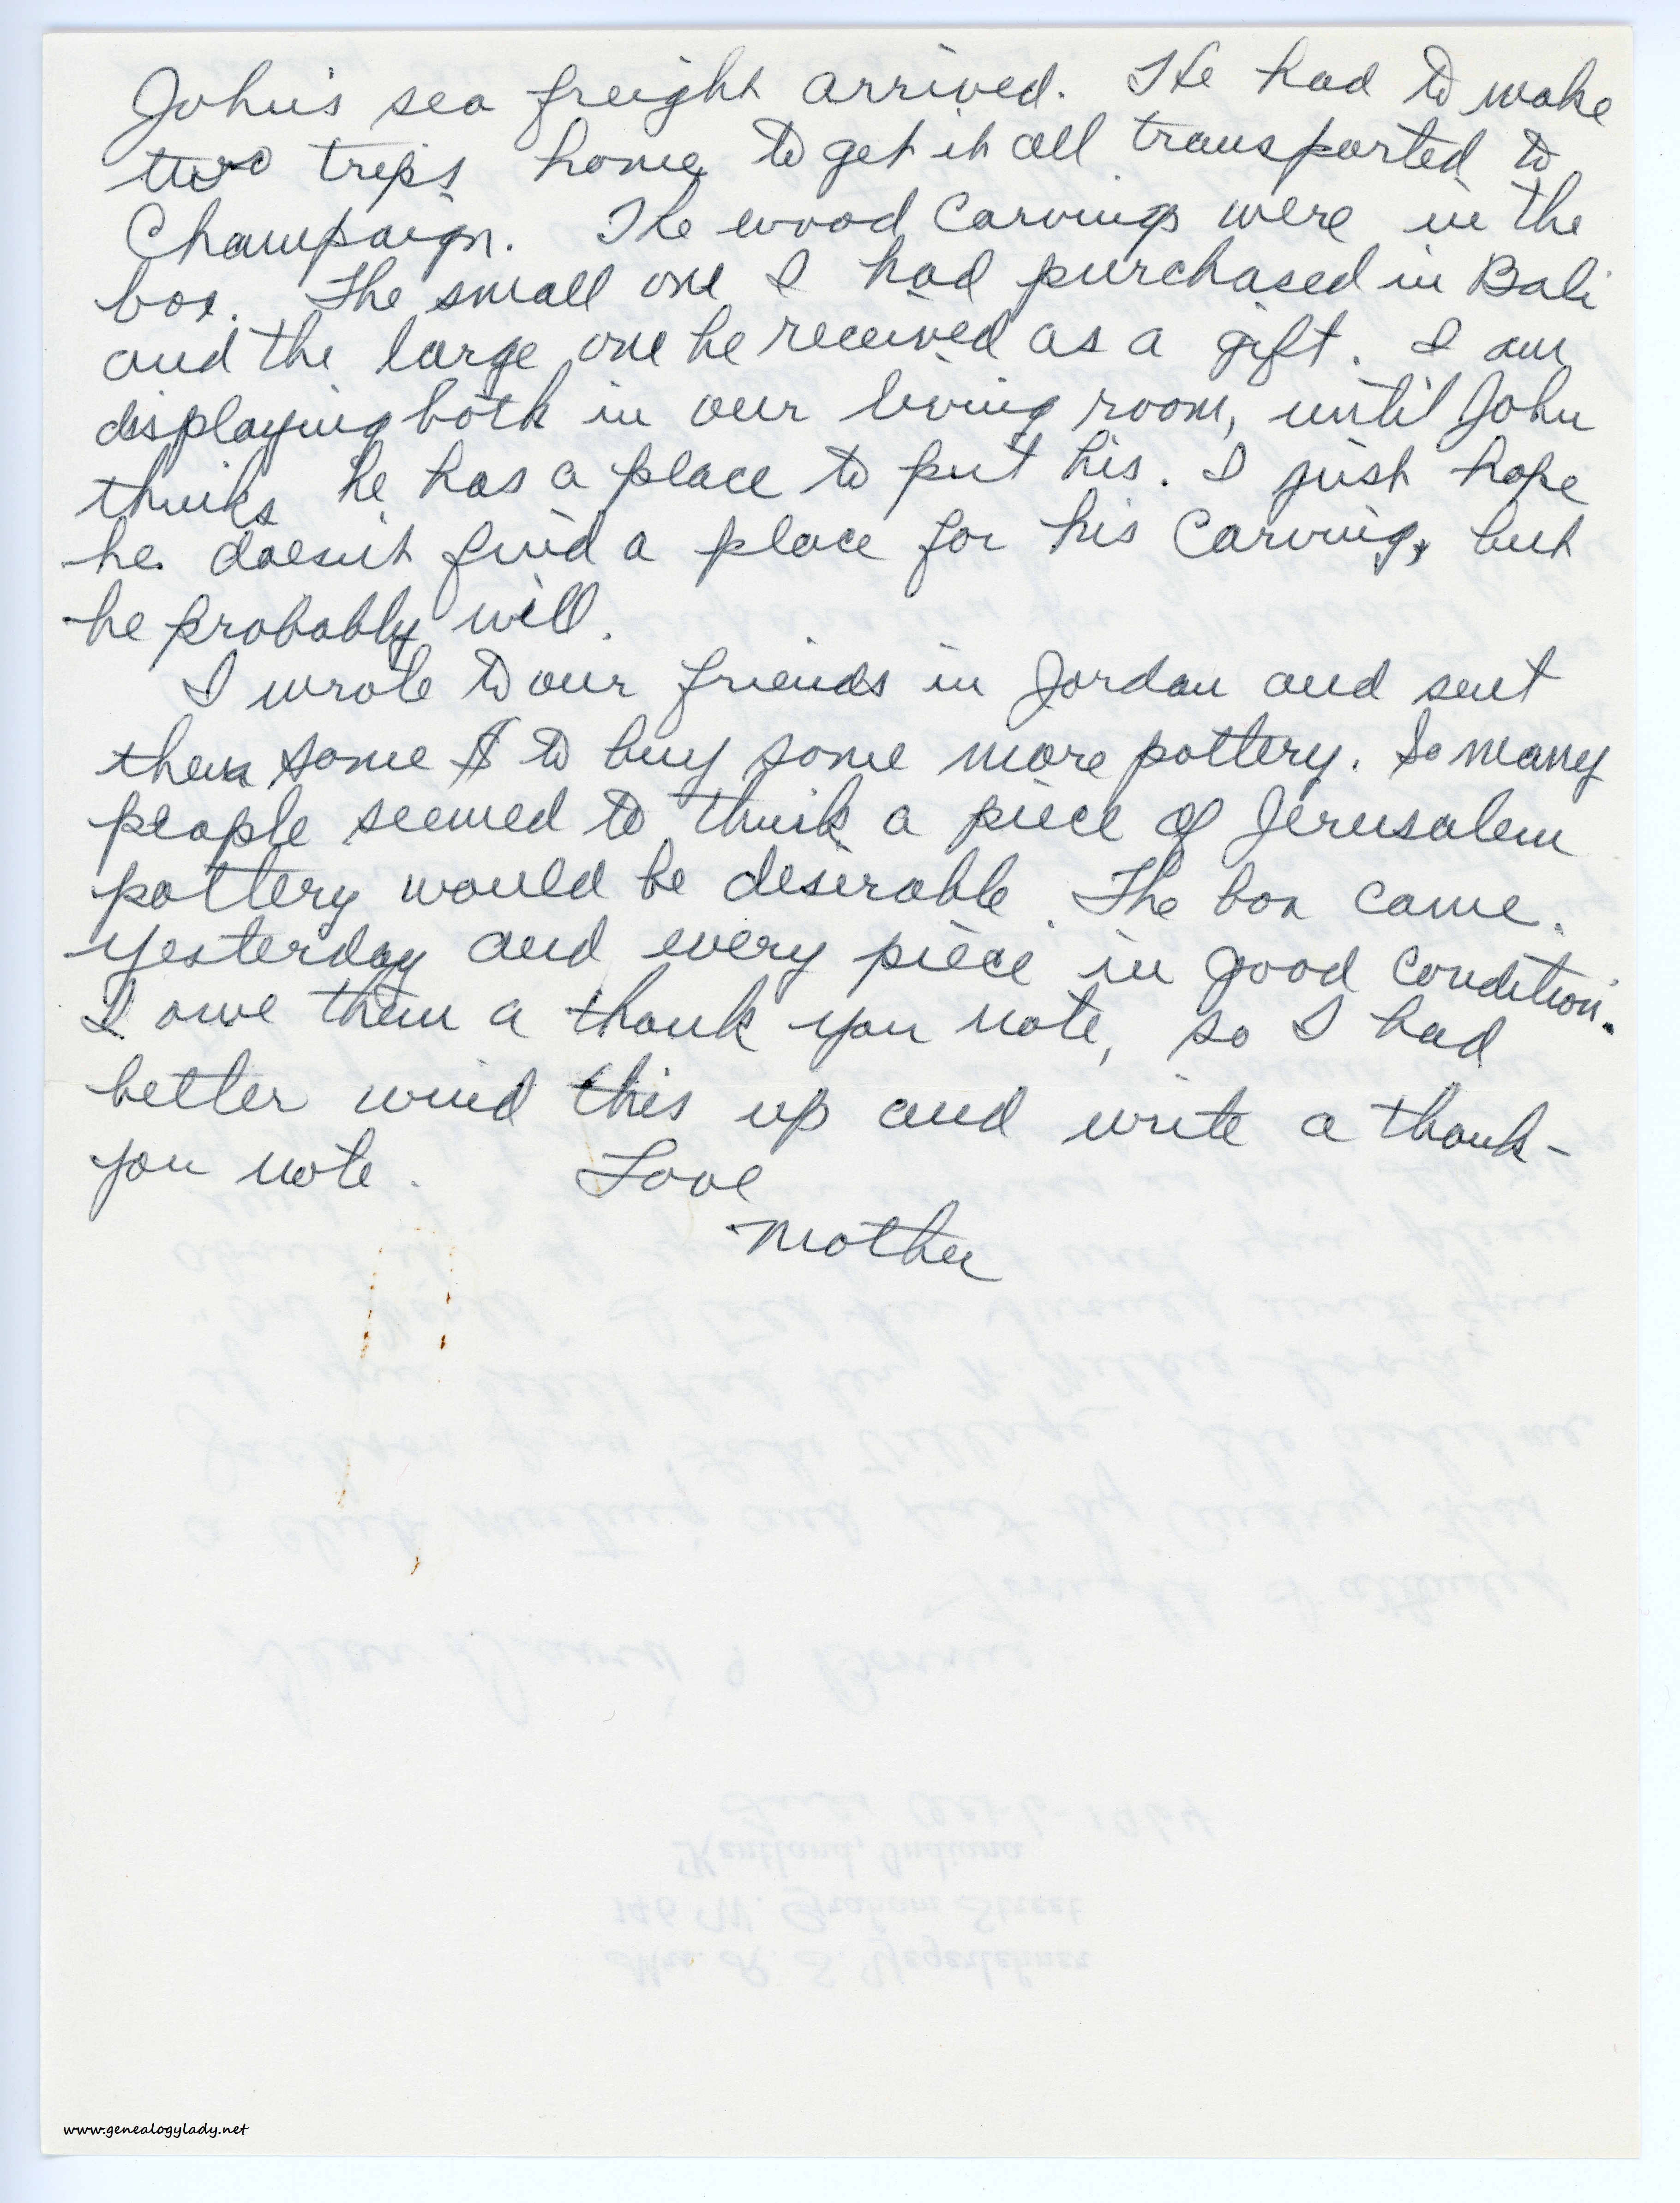 John's sea freight arrived. He had to make
two trips home to get it all transported to
Champaign. The wood carvings were in the
box. The small one I had purchased in Bali
and the large one he received as a gift. I am
displaying both in our living room, until John
thinks he has a place to put his. I just hope
he doesn't find a place for his carving, but
he probably will.
I wrote to our friends in Jordan and sent
them some $ to buy some more pottery. So many
people seemed to think a piece of Jerusalem
pottery would be desirable. The box came
yesterday and every piece in good condition.
I owe them a thank you note, so I had
better wind this up and write a thank-
you note. Love
Mother
Dear David &
Tonight I attended
a club meeting and sat by Audrey
"One World"
Kentland, Indiana
146 W. Graham Street
Mrs. R. S. Yegerlehner
www.genealogylady.net